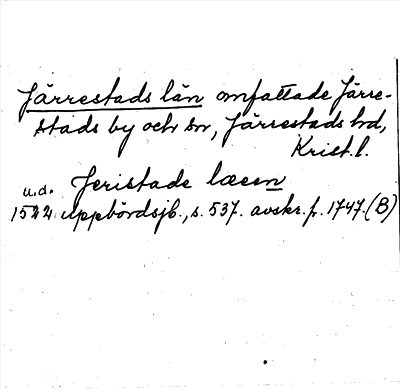 Järrestads län omfattade Järre-
stads by och sn, Järrestads hd,
Krist.l.
u.d. Jeristade læen
1522 uppbördsjb., s. 537. avskr. fr. 1747. (B)